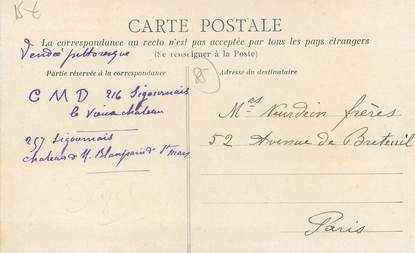 CARTE POSTALE
La correspondance au recto n'est pas acceptée par tous les pays étrangers
(Se renseigner à la Poste)
Vendée pittoresque
Partie réservée à la correspondance
Adresse du destinataire
C M D 216 Sigournais
le Vieux château
257 Sigournais
Chateau de M. Blanpain de St Mars
Mrs Neurdein frères
52 Avenue de Breteuil
Paris